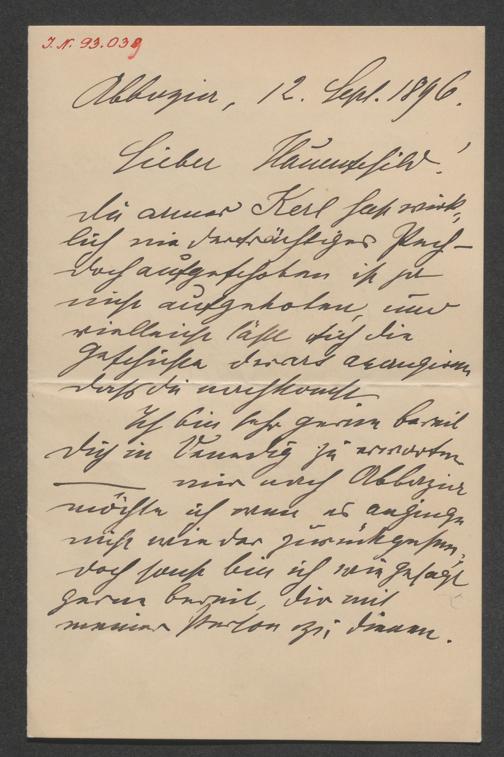 I. N. 93.039
Abbazia, 12. Sept. 1896.
Lieber Hauenschild!
Du armer Kerl hast wirk-
lich ein niederträchtiges Pech -
doch aufgeschoben ist ja
nicht aufgehoben, und
vielleicht läßt sich die
Geschichte derart arangiren
daß du nachkommst
Ich bin sehr gerne bereit
dich in Venedig zu erwarten
nur nach Abbazia
möchte ich wenn es anginge
nicht wieder zurückgehen,
doch sonst bin ich wie gesagt
gerne bereit, dir mit
meiner Person zu dienen.